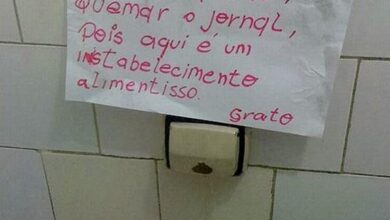 quemar o jornal,
Pois aqui é um
instabelecimento
alimentisso.
Grato